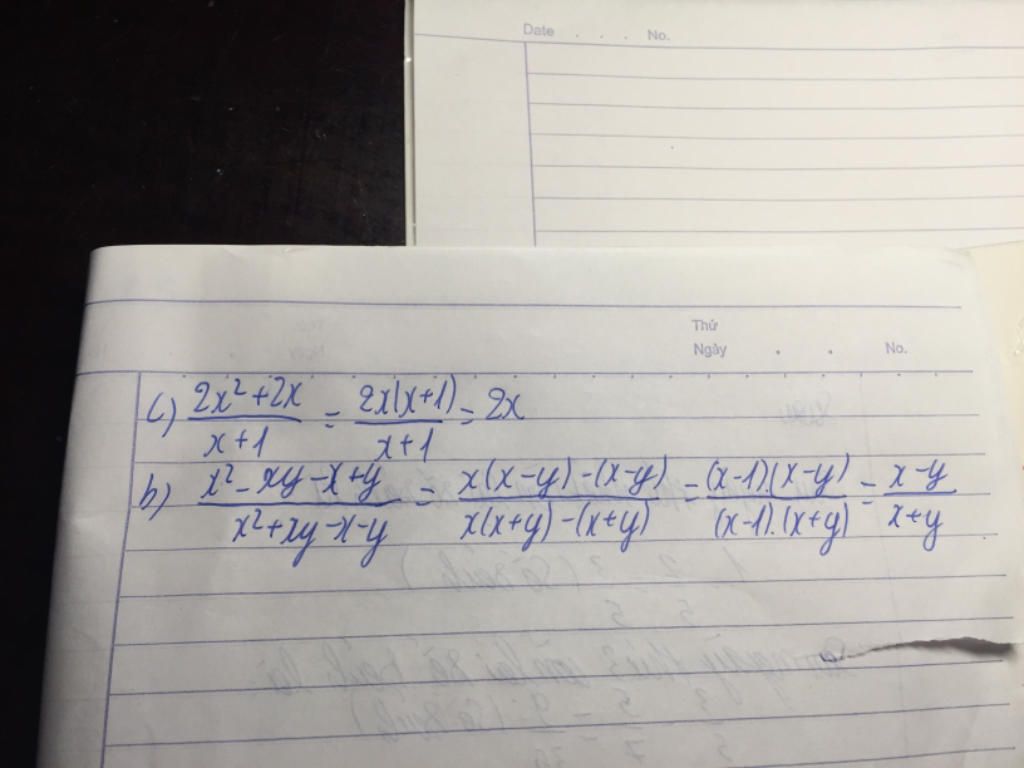 Date . . . No.
Thứ
Ngày . . No.
c) \frac{2x^2+2x}{x+1} = \frac{2x(x+1)}{x+1} = 2x
b) \frac{x^2-xy-x+y}{x^2+xy-x-y} = \frac{x(x-y)-(x-y)}{x(x+y)-(x+y)} = \frac{(x-1).(x-y)}{(x-1).(x+y)} = \frac{x-y}{x+y}